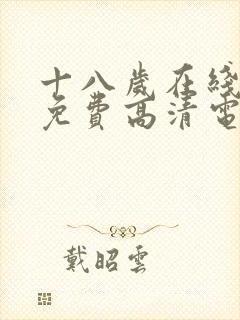 十八歲在綫
免費高清電
戴昭雲